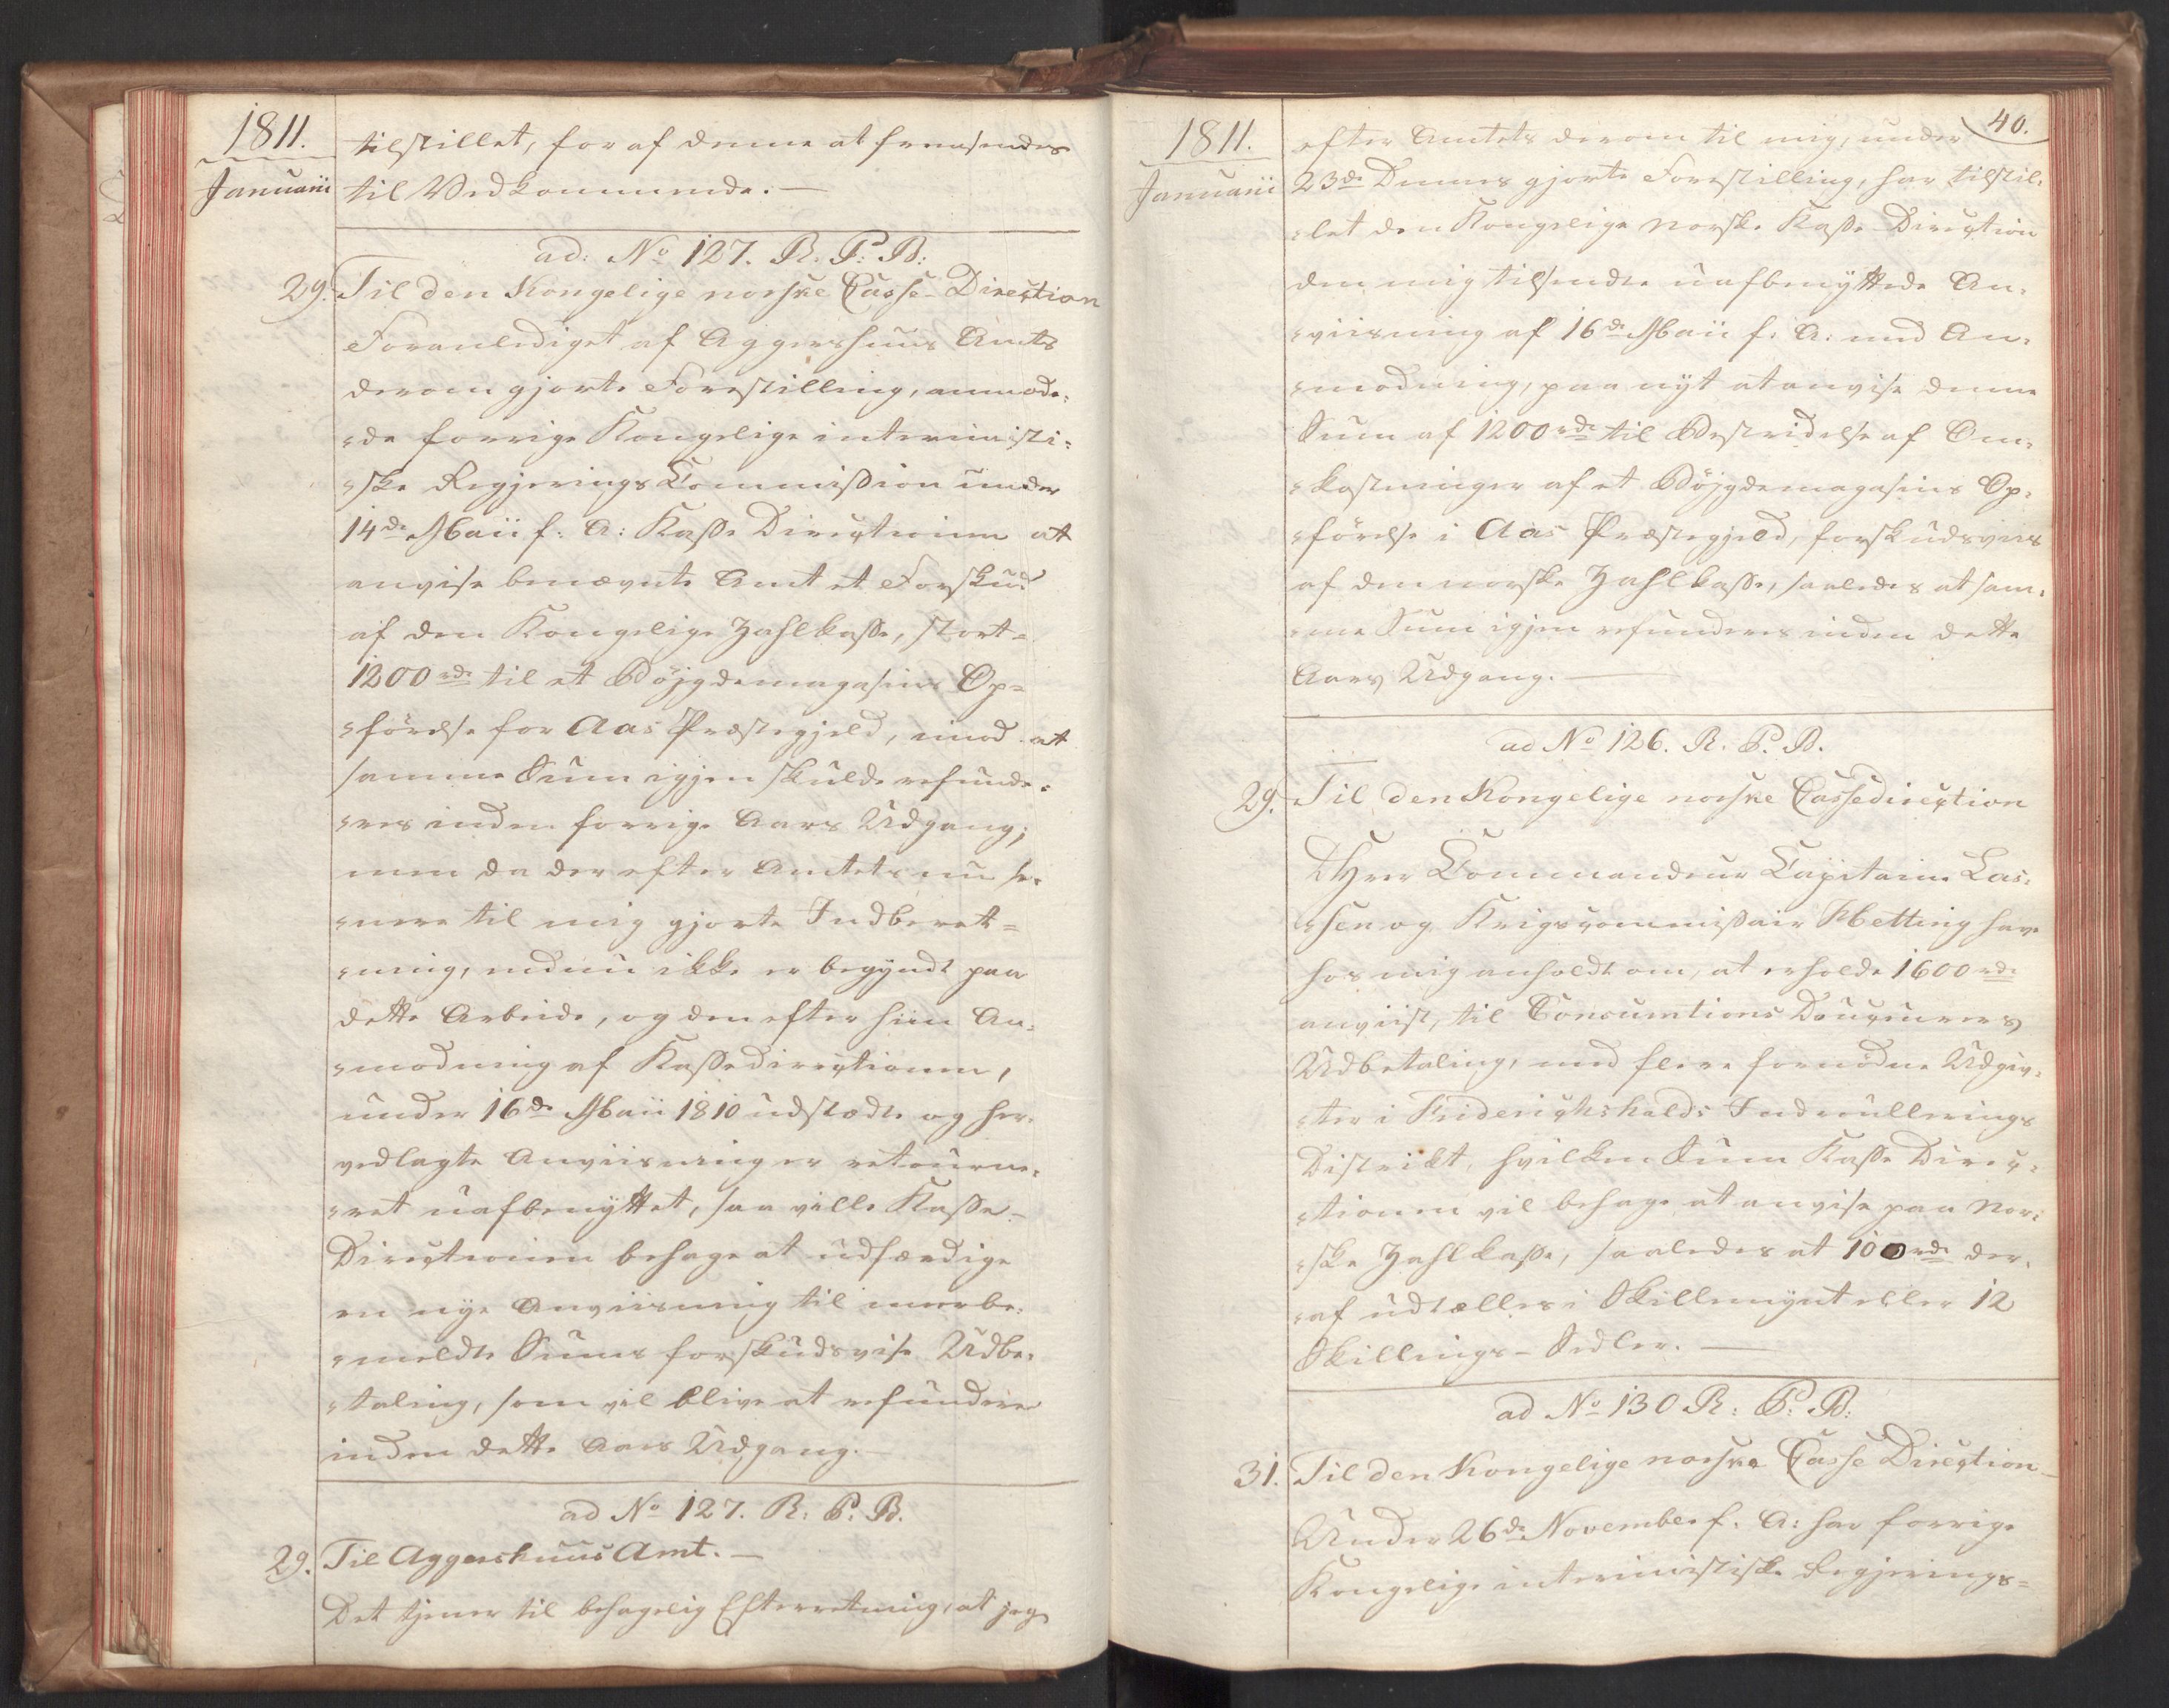 1811.
Januarii
tilstillet, for af denne at fremsendes
til Vedkommende. —
ad: No 127. R. P. B:
29. Til den Kongelige norske Casse-Direction
Foranlediget af Aggershuus Amts
derom gjorte Forestilling, anmode-
=de forrige Kongelige interimisti-
=ske Regjerings Commission under
14de Maii f: A: Kasse Directionen at
anvise benævnte Amt et Forskud
af den Kongelige Zahlkasse, stort-
1200 rd. til et Böjgdemagasins Op=
=förelse for Aas Præstegjeld, imod at
samme Sum igjen skulde refunde-
=res inden forrige Aars Udgang;
men da der efter Amtets nu se-
=nere til mig gjorte Indberet=
=ning, endnu ikke er begyndt paa
dette Arbeide, og den efter hiin An-
=modning af Kassedirectionen,
under 16de Maii 1810 udstædte og her-
vedlagte Anviisning er retourne-
=ret uafbenyttet, saa ville Kasse-
Directionen behage at udfærdige
en nye Anviisning til meerbe-
=meldte Sums forskudsvise Udbe-
=taling, som vil blive at refundere
inden dette Aars Udgang. —
ad No 127. R: P. B.
29. Til Aggershuus Amt. —
Det tjener til behagelig Efterretning, at jeg
40.
1811.
Januarii
efter Amtets derom til mig, under
23de Dennes gjorte Forestilling, har tilstil-
=let den Kongelige norske Kasse-Direction
den mig tilsendte uafbenyttede An-
=viisning af 16de Maii f: A: med An-
=modning, paa nyt at anvise denne
Sum af 1200 rd. til Bestridelse af Om-
=kostninger af et Böjgdemagasins Op-
=förelse i Aas Præstegjeld, forskudsviis
af den norske Zahlkasse, saaledes at sam-
=me Sum igjen refunderes inden dette
Aars Udgang. —
ad No 126. R. P. B.
29. Til den Kongelige norske Cassedirection
DHrer Commandeur Capitaine Las-
=sen og Krigscommissair Metting have
hos mig anholdt om, at erholde 1600 rd.
anviist, til Consumtions Douceurers
Udbetaling, med flere fornödne Udgiv-
=ter i Friderichshalds Indroullerings
Distrikt, hvilken Sum Kasse Direc-
=tionen vil behage at anvise paa Nor-
=ske Zahlkasse, saaledes at 100 rd. der-
=af udtælles i Skillemynt eller 12
Skillings-Sedler. —
ad No 130 R: P. B:
31. Til den Kongelige norske Casse Direction
Under 26de November f. A: har forrige
Kongelige interimistiske Regjerings=